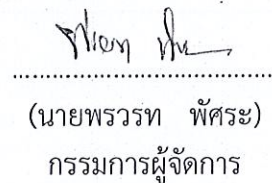 (นายพรวรท พัศระ)
กรรมการผู้จัดการ